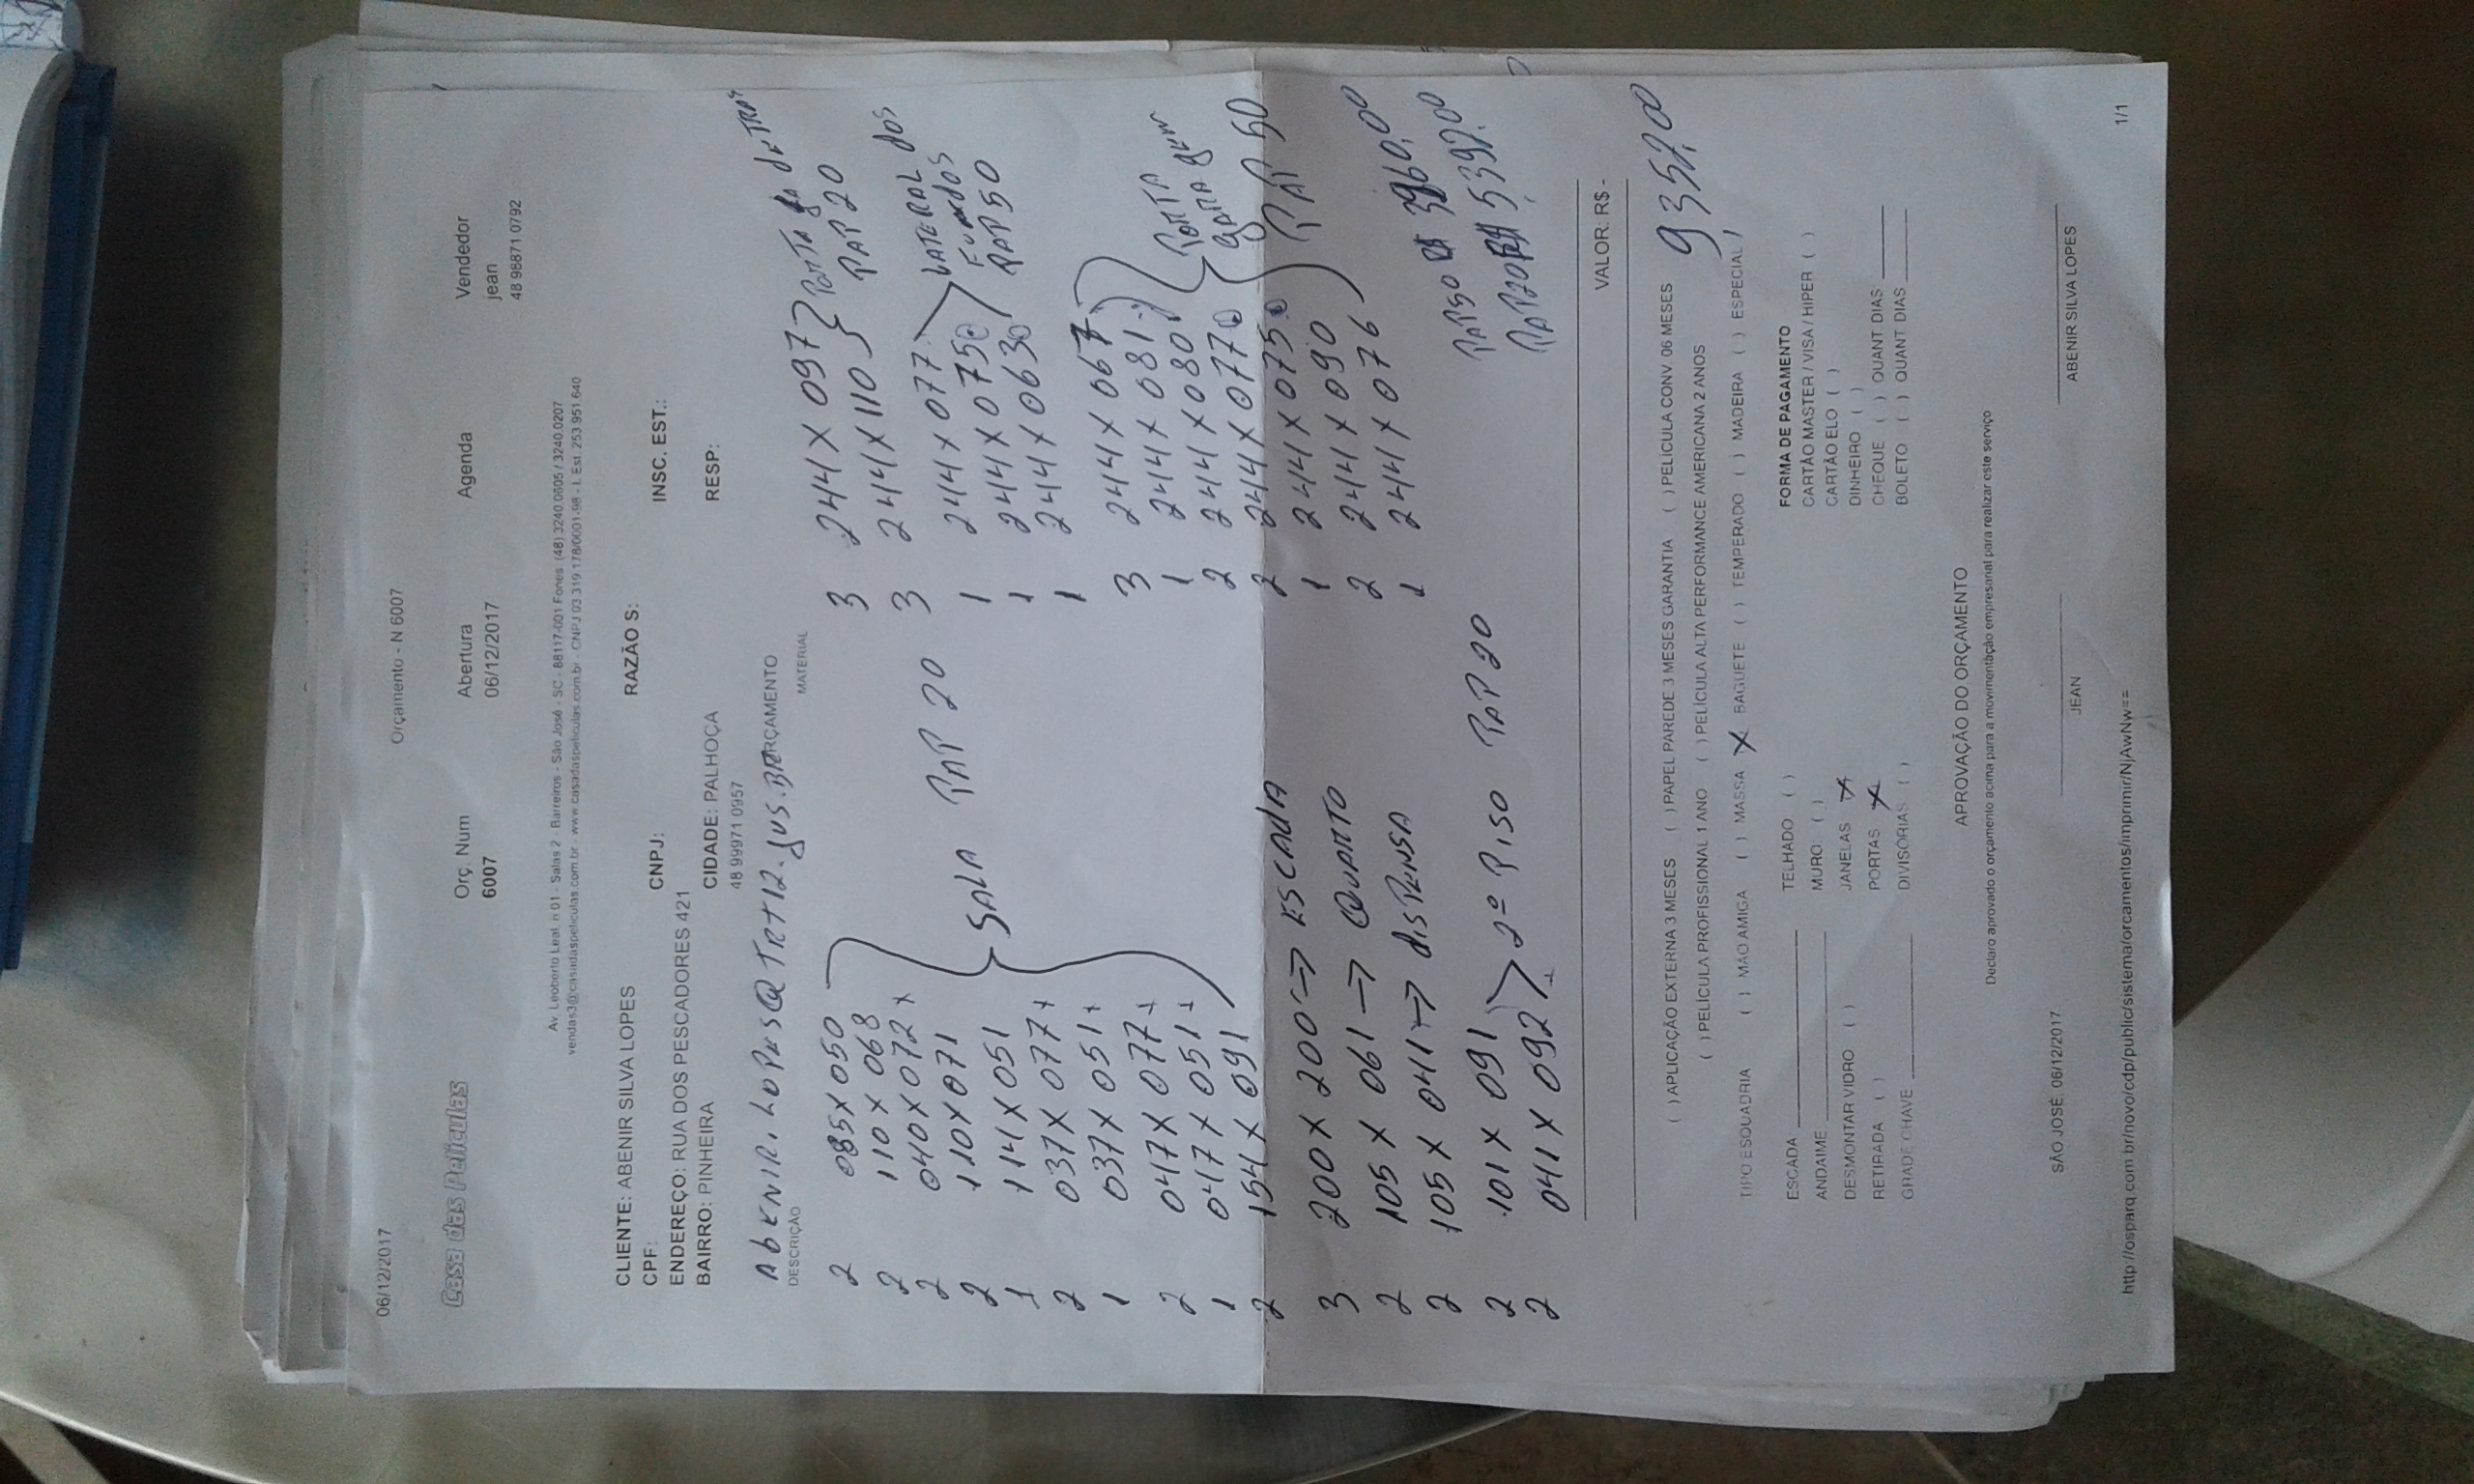 06/12/2017 Orçamento - N 6007
Casa das Películas
Orç. Núm Abertura Agenda Vendedor
6007 06/12/2017 jean
48 98871 0792
Av. Leoberto Leal, n 01 - Salas 2 - Barreiros - São José - SC - 88117-001 Fones: (48) 3240.0605 / 3240.0207
vendas3@casadaspeliculas.com.br - www.casadaspeliculas.com.br - CNPJ 03 319 178/0001-98 - I. Est. 253.951.640
CLIENTE: ABENIR SILVA LOPES RAZÃO S:
CPF: CNPJ: INSC. EST.:
ENDEREÇO: RUA DOS PESCADORES 421
BAIRRO: PINHEIRA CIDADE: PALHOÇA RESP:
48 99971 0957
AbENIR.LOPES@TRT12.JUS.BR
DESCRIÇÃO ORÇAMENTO MATERIAL
2 085 X 050
2 110 X 068
2 040 X 072 +
2 110 X 071
1 114 X 051
2 037 X 077 +
1 037 X 051 +
2 047 X 077 +
1 047 X 051 +
2 154 X 091
SALA RAP 20
3 200 X 200 → ESCADA
2 105 X 061 → QUARTO
2 105 X 041 → DISPENSA
2 101 X 091
2 041 X 092
2º PISO RAP 20
3 244 X 097
3 244 X 110
PORTA DE TRAS
RAP 20
1 244 X 077
1 244 X 075
1 244 X 063
LATERAL DOS
FUNDOS
RAP 50
3 244 X 067
1 244 X 081
2 244 X 080
2 244 X 077
1 244 X 075
2 244 X 090
1 244 X 076
PORTA
RAP 50
RAP 50 3960,00
RAP 20 5397,00
VALOR: R$ -
9357,00
( ) APLICAÇÃO EXTERNA 3 MESES ( ) PAPEL PAREDE 3 MESES GARANTIA ( ) PELÍCULA CONV. 06 MESES
( ) PELÍCULA PROFISSIONAL 1 ANO ( ) PELÍCULA ALTA PERFORMANCE AMERICANA 2 ANOS
TIPO ESQUADRIA ( ) MÃO AMIGA ( ) MASSA X BAGUETE ( ) TEMPERADO ( ) MADEIRA ( ) ESPECIAL
ESCADA TELHADO ( ) FORMA DE PAGAMENTO
ANDAIME MURO ( ) CARTÃO MASTER / VISA / HIPER ( )
DESMONTAR VIDRO ( ) JANELAS X CARTÃO ELO ( )
RETIRADA ( ) PORTAS X DINHEIRO ( )
GRADE CHAVE DIVISÓRIAS ( ) CHEQUE ( ) QUANT DIAS
BOLETO ( ) QUANT DIAS
APROVAÇÃO DO ORÇAMENTO
Declaro aprovado o orçamento acima para a movimentação empresarial para realizar este serviço
SÃO JOSÉ 06/12/2017
JEAN ABENIR SILVA LOPES
http://osparq.com.br/novo/cdp/public/sistema/orcamentos/imprimir/NjAwNw== 1/1